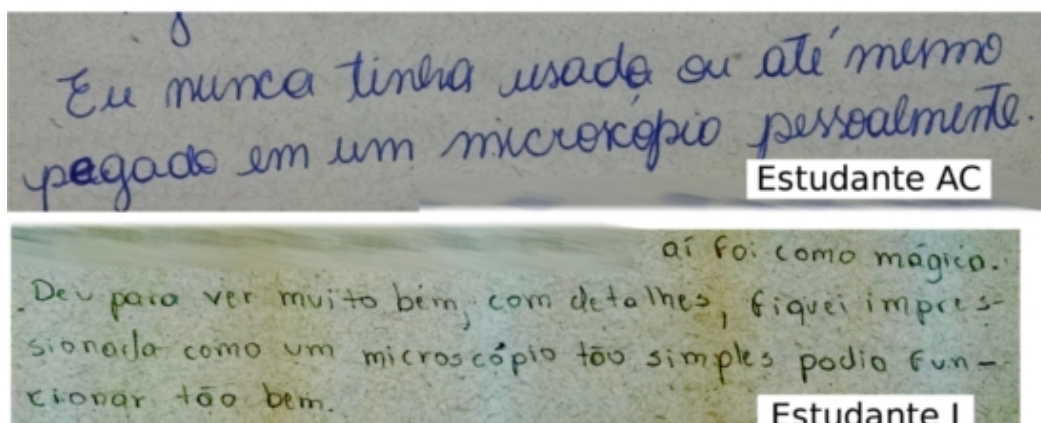 Eu nunca tinha usado ou até mesmo
pegado em um microscópio pessoalmente.
Estudante AC
aí foi como mágica.
Deu para ver muito bem, com detalhes, fiquei impres-
sionada como um microscópio tão simples podia fun-
cionar tão bem.
Estudante I